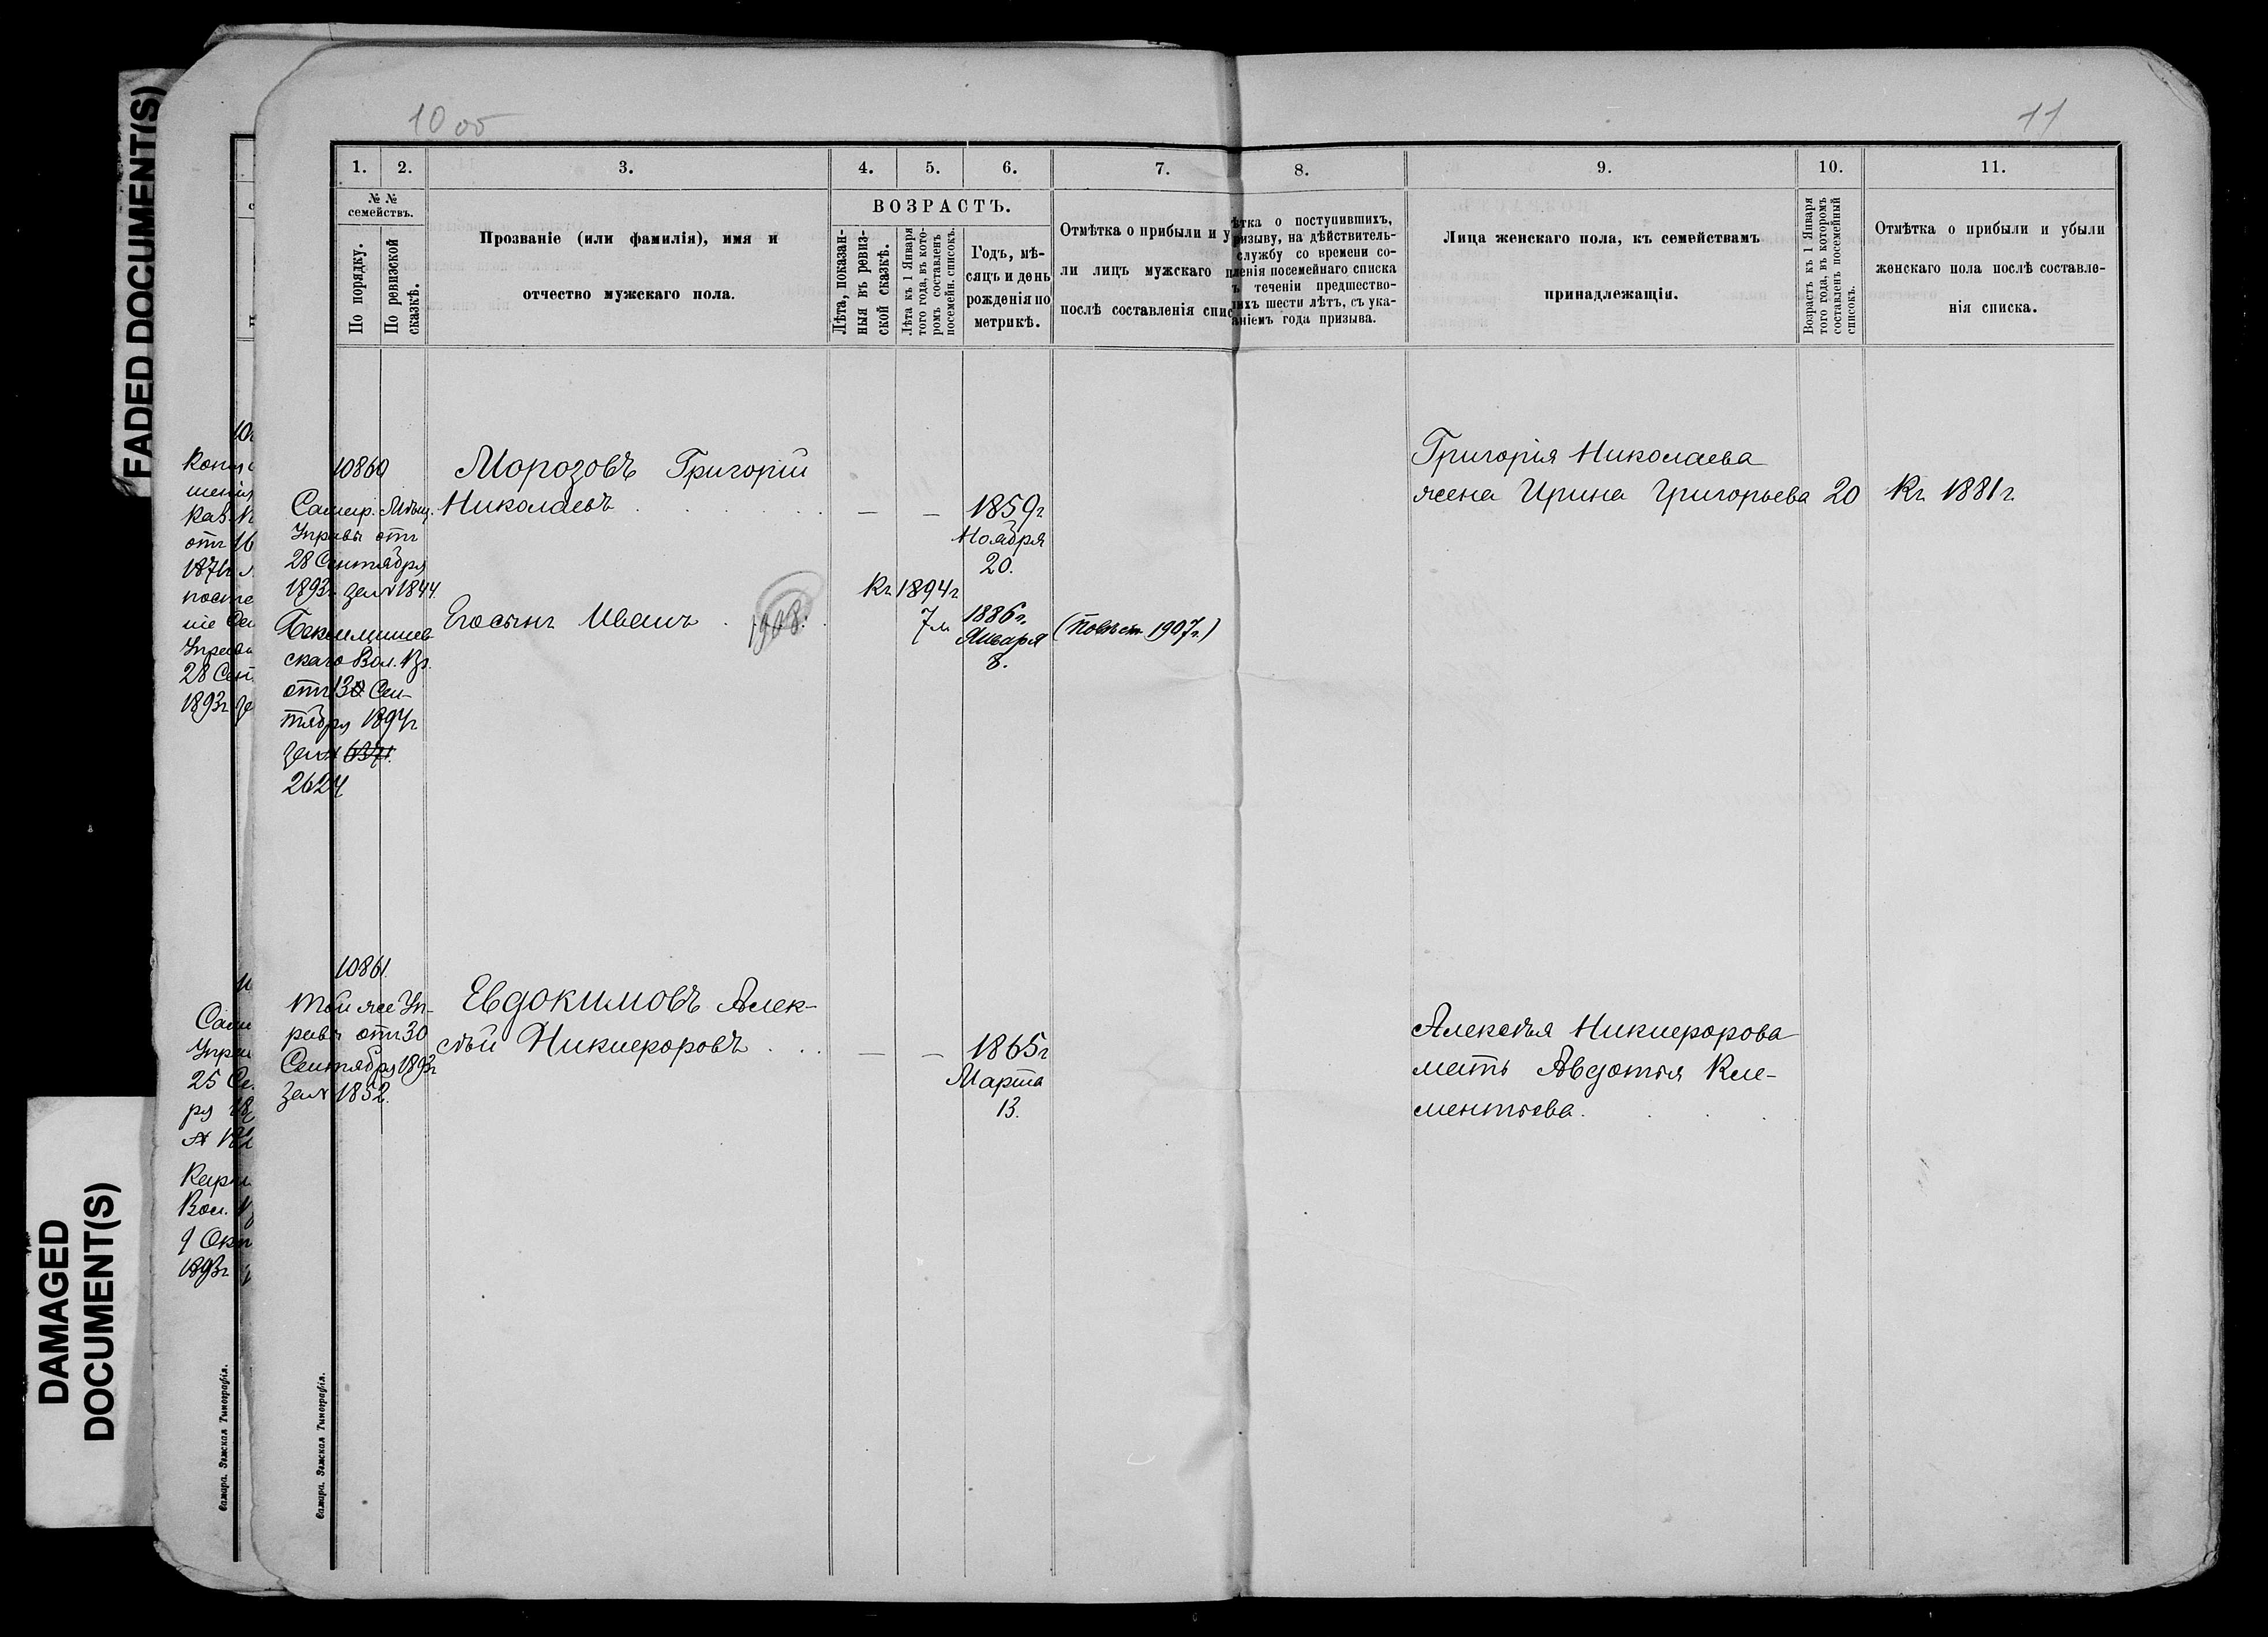 FADED DOCUMENT(S)
DAMAGED
DOCUMENT(S)
10 об
11
1. 2. 3. 4. 5. 6. 7. 8. 9. 10. 11.
№ №
семействъ.
По порядку.
По ревизской
сказкѣ.
Прозваніе (или фамилія), имя и
отчество мужскаго пола.
ВОЗРАСТЪ.
Лѣта, показан-
ныя въ ревиз-
ской сказкѣ.
Лѣта къ 1 Января
того года, въ кото-
ромъ составленъ
посемейн. списокъ.
Годъ, мѣ-
сяцъ и день
рожденія по
метрикѣ.
Отмѣтка о прибыли и у
ли лицъ мужскаго п
послѣ составленія спис
ѣтка о поступившихъ,
ризыву, на дѣйствитель-
службу со времени со-
ленія посемейнаго списка
ъ теченіи предшество-
ихъ шести лѣтъ, съ ука-
аніемъ года призыва.
Лица женскаго пола, къ семействамъ
принадлежащія.
Возрастъ къ 1 Января
того года, въ которомъ
составленъ посемейный
списокъ.
Отмѣтка о прибыли и убыли
женскаго пола послѣ составле-
нія списка.
10860
Самар. Мѣщ.
Управы отъ
28 Сентября
1893г. за № 1844.
Морозовъ Григорій
Николаевъ
— — 1859г
Ноября
20.
Григорія Николаева
жена Ирина Григорьева 20 Къ 1881г
Къ 1894г
Его сынъ Иванъ 1908.
7 л. 1886г.
Января
8.
(Повѣст. 1907г.)
скаго Вол. Пр.
отъ 30 Сен-
тября 1894г.
за №
2624
10861
Той же Уп-
равы отъ 30
Сентября 1893г
за № 1852.
Евдокимовъ Алек-
сѣй Никифоровъ
— — 1865г
Марта
13.
Алексѣя Никифорова
мать Авдотья Кле-
ментьева.
Самара. Земская Типографія.
Самара. Земская Типографія.